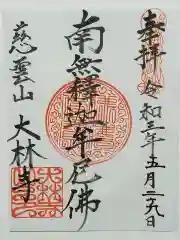 奉拝
令和三年五月二九日
南無釋迦牟尼佛
慈雲山
大林寺